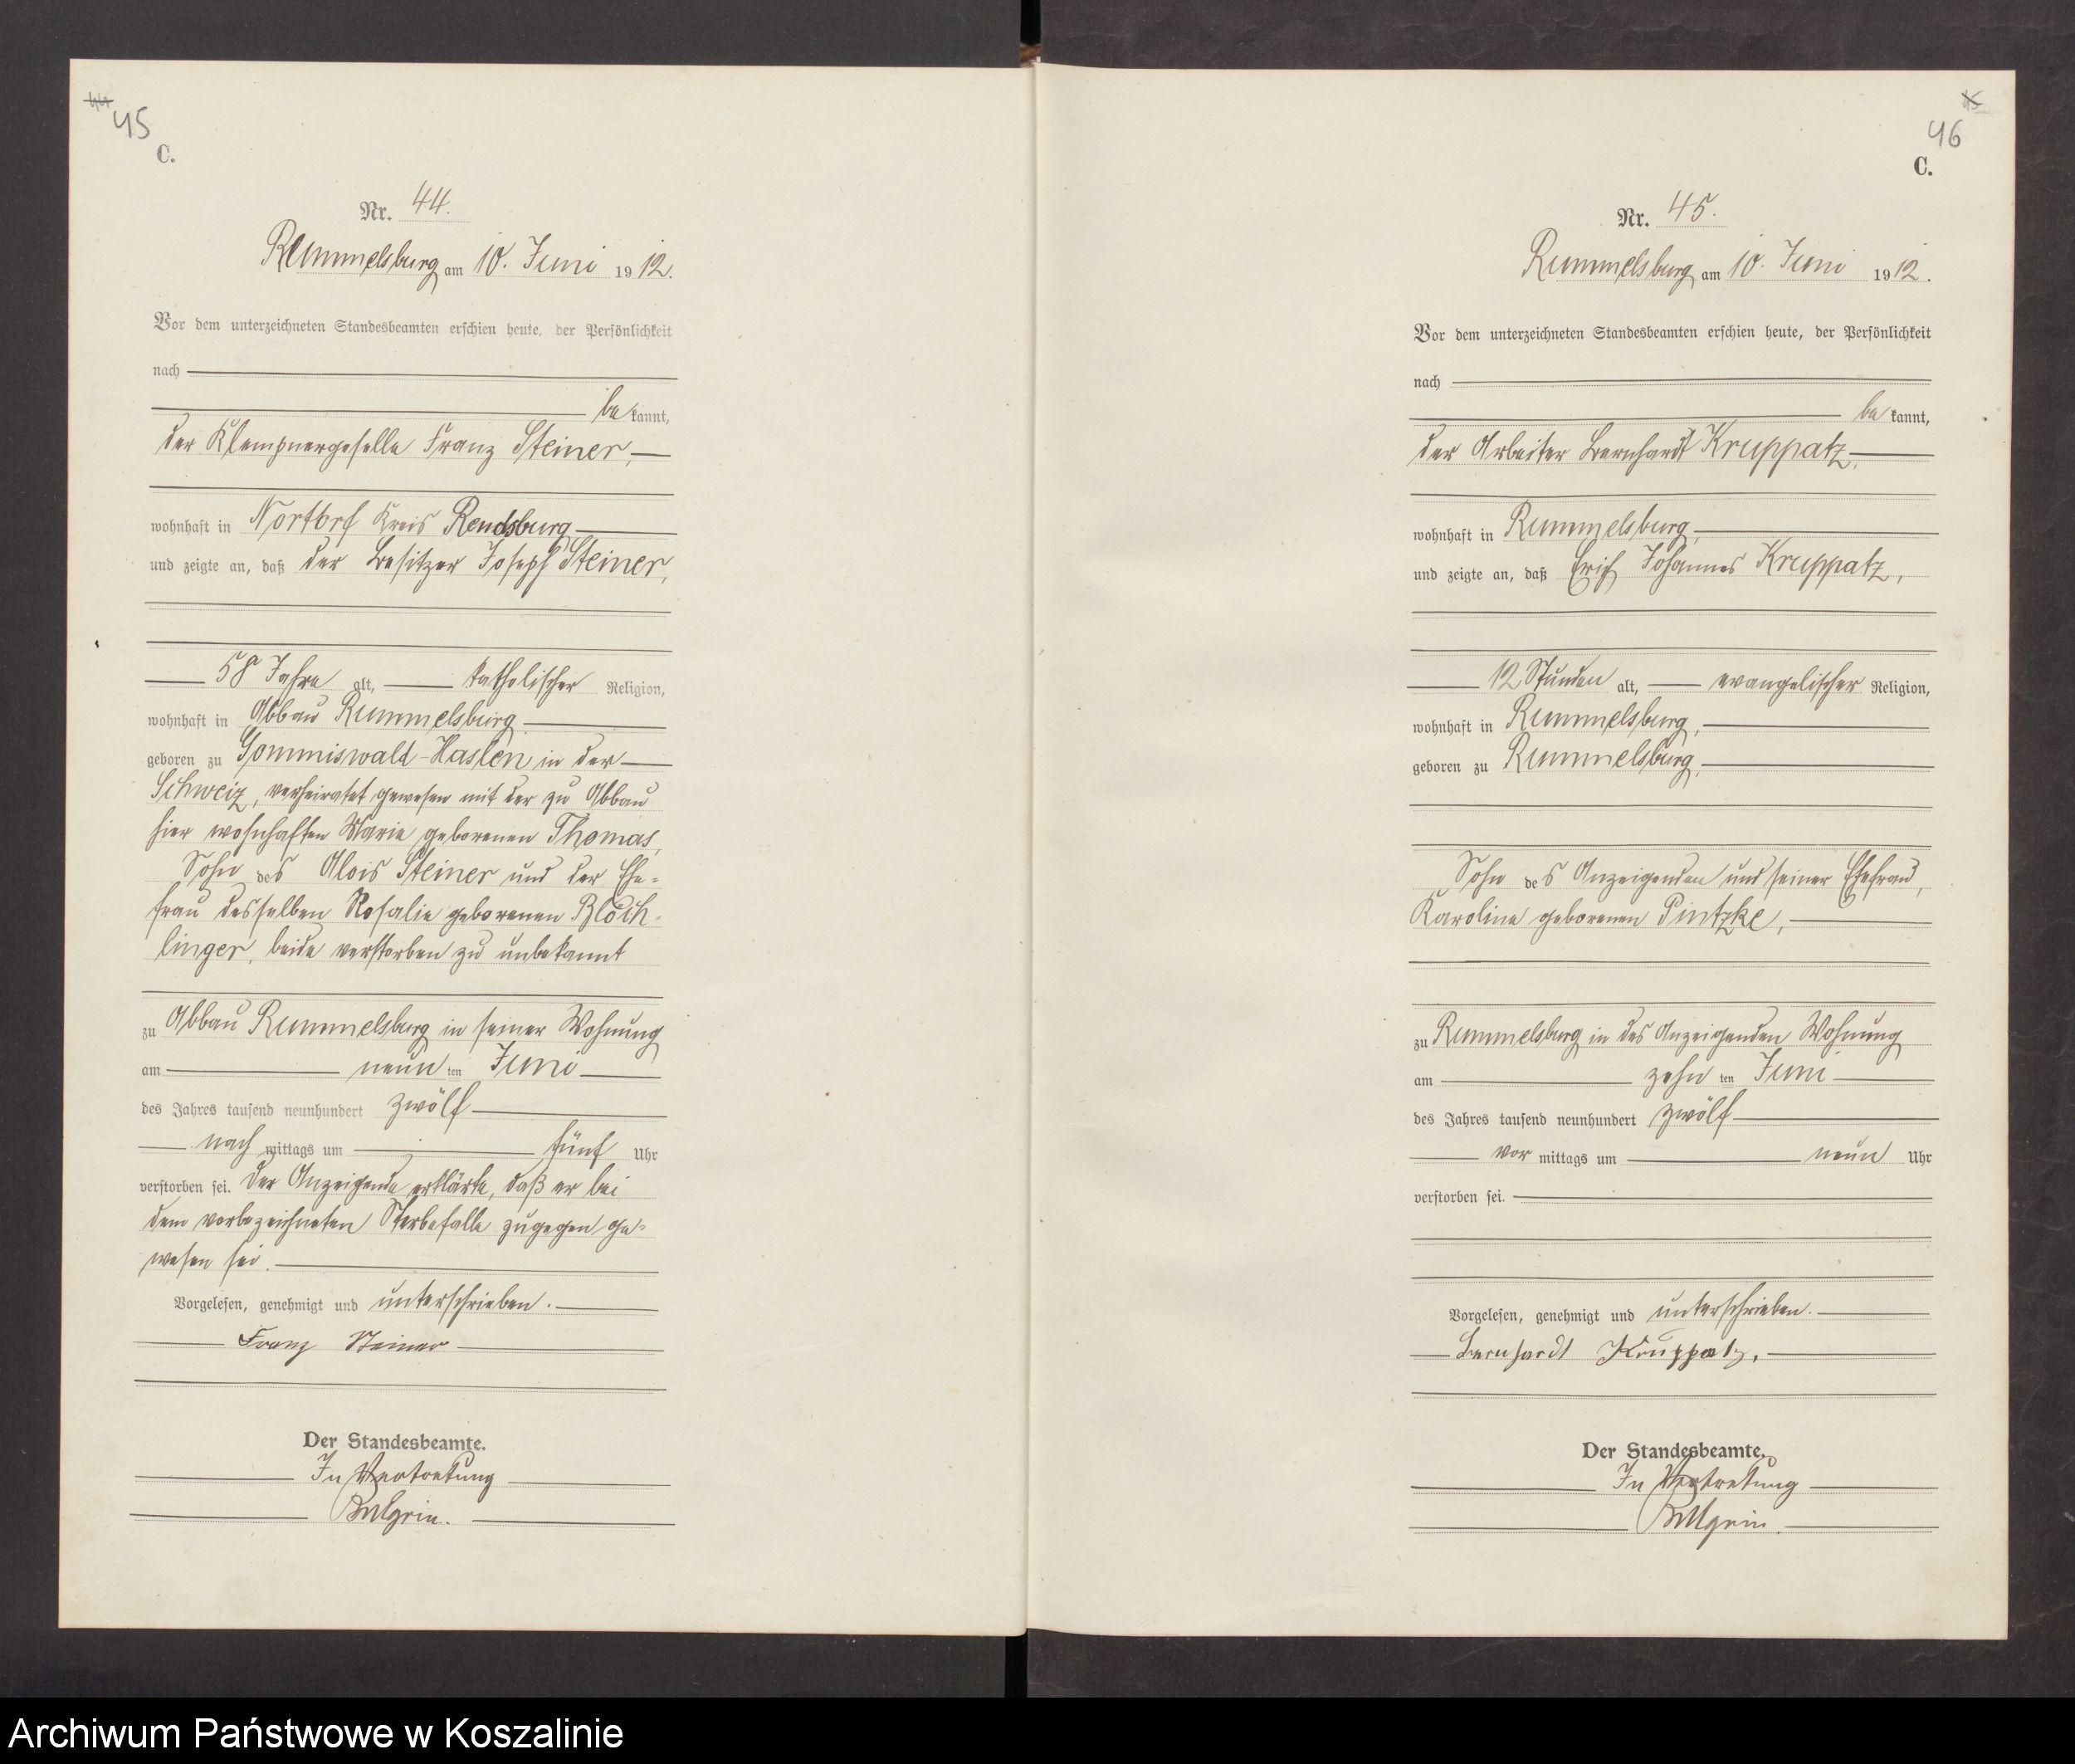 44
45
C.
Nr. 44.
Rummelsburg am 10. Juni 1912.
Vor dem unterzeichneten Standesbeamten erschien heute, der Persönlichkeit
nach
bekannt,
der Klempnergeselle Franz Steiner,
wohnhaft in Nortorf Kreis Rendsburg
und zeigte an, daß der Besitzer Joseph Steiner,
58 Jahre alt, katholischer Religion,
wohnhaft in Abbau Rummelsburg
geboren zu Gommiswald-Haslen in der
Schweiz, verheiratet gewesen mit der zu Abbau
hier wohnhaften Marie geborenen Thomas,
Sohn des Alois Steiner und der Ehe-
frau desselben Rosalie geborenen Blöch-
linger, beide verstorben zu unbekannt
zu Abbau Rummelsburg in seiner Wohnung
am neunten Juni
des Jahres tausend neunhundert zwölf
nachmittags um fünf Uhr
verstorben sei. Der Anzeigende erklärte, daß er bei
dem vorbezeichneten Sterbefalle zugegen ge-
wesen sei.
Vorgelesen, genehmigt und unterschrieben.
Franz Steiner
Der Standesbeamte.
In Vertretung
46
C.
Nr. 45.
Rummelsburg am 10. Juni 1912.
Vor dem unterzeichneten Standesbeamten erschien heute, der Persönlichkeit
nach
bekannt,
der Arbeiter Bernhardt Kruppatz,
wohnhaft in Rummelsburg,
und zeigte an, daß Erich Johannes Kruppatz,
12 Stunden alt, evangelischer Religion,
wohnhaft in Rummelsburg,
geboren zu Rummelsburg,
Sohn des Anzeigenden und seiner Ehefrau,
Karoline geborenen Pintzke,
zu Rummelsburg in des Anzeigenden Wohnung
am zehnten Juni
des Jahres tausend neunhundert zwölf
vormittags um neun Uhr
verstorben sei.
Vorgelesen, genehmigt und unterschrieben.
Bernhardt Kruppatz.
Der Standesbeamte.
In Vertretung
Archiwum Państwowe w Koszalinie